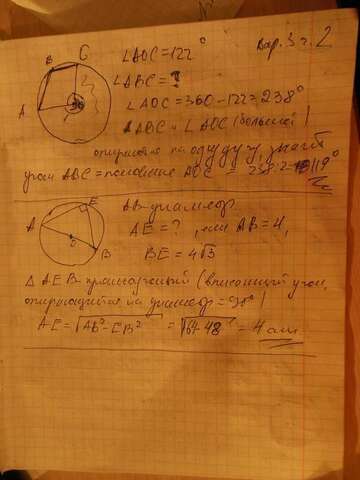 Вар. 3 г. 2
B C
∠AOC = 122°
∠ABC = ?
A
∠AOC = 360 - 122 = 238°
∠ABC и ∠AOC (большой)
опираются на одну дугу, значит
угол ABC = половине AOC = 238:2 = 119°
E
AB - диаметр
A
AE = ?, если AB = 4,
O
B
BE = 4√3
△ AEB - прямоугольный (вписанный угол,
опирающийся на диаметр = 90°)
AE = √AB² - EB² = √64 - 48 = 4